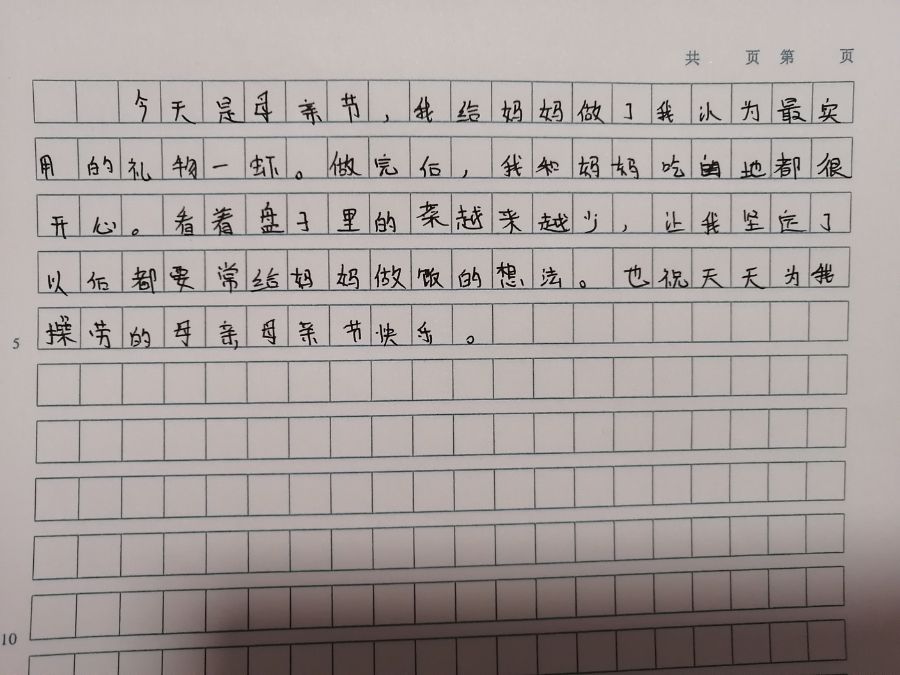 共 页 第 页
今天是母亲节，我给妈妈做了我认为最实
用的礼物一虾。做完后，我和妈妈吃地都很
开心。看着盘子里的菜越来越少，让我坚定了
以后都要常给妈妈做饭的想法。也祝天天为我
5 操劳的母亲，母亲节快乐。
10